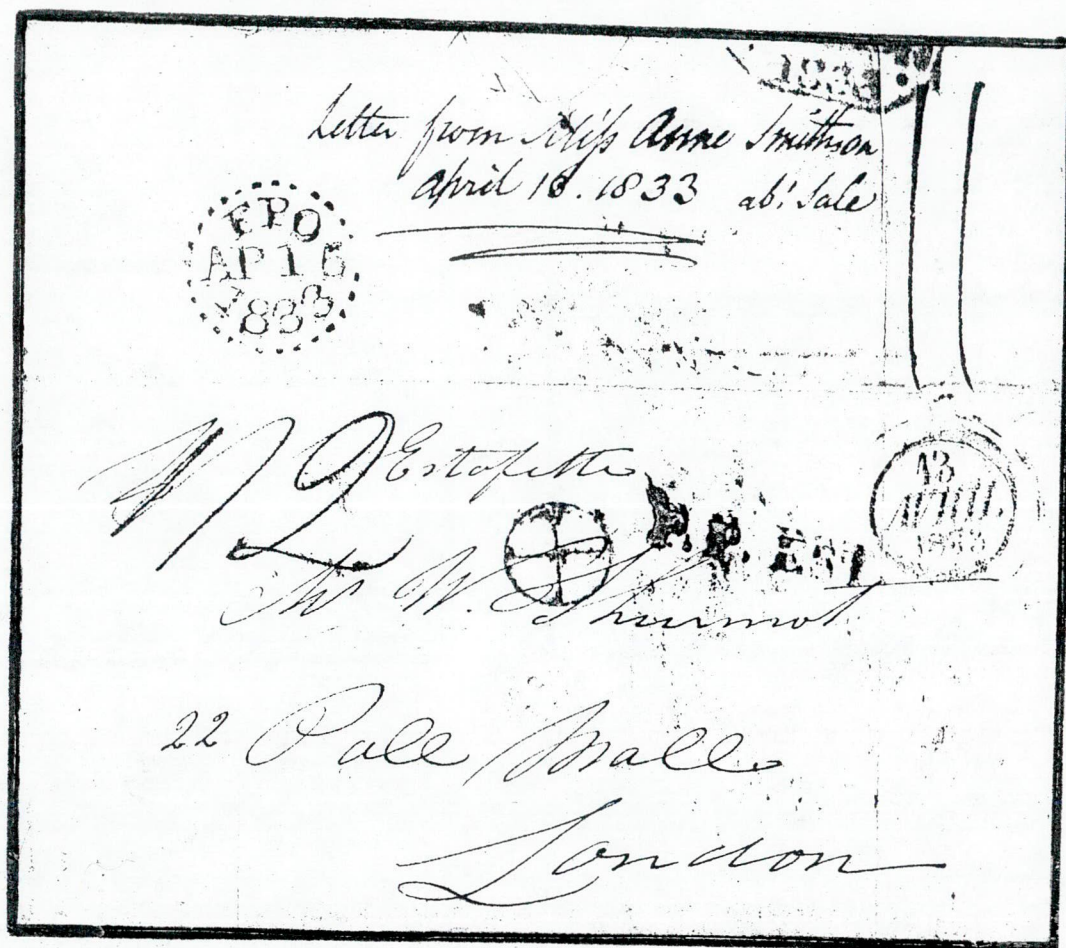 183
Letter from Miss Anne Smithson
April 13. 1833 abt Sale
FPO
AP 15
1833
Estafette
13
AVRIL
1833
P.P. EST
Mr W.
22 Pall Mall
London